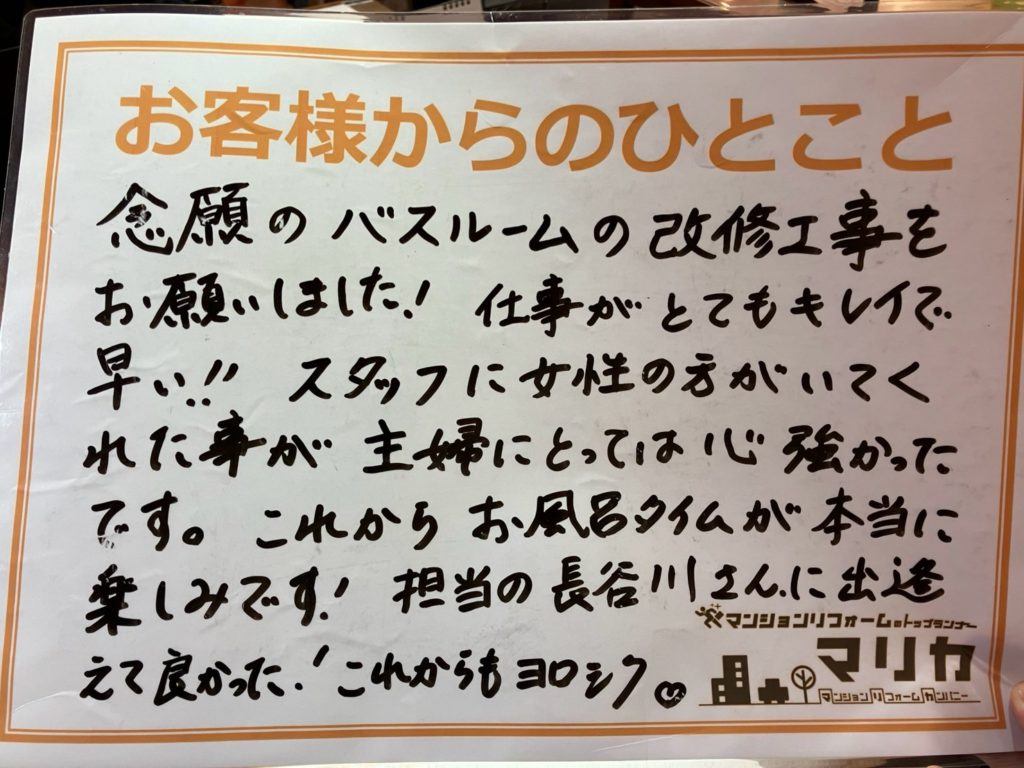 お客様からのひとこと
念願のバスルームの改修工事を
お願いしました! 仕事がとてもキレイで
早い!! スタッフに女性の方がいてく
れた事が主婦にとっては心強かった
です。これからお風呂タイムが本当に
楽しみです! 担当の長谷川さんに出逢
えて良かった! これからもヨロシク
マンションリフォームのトップランナー
マリカ
マンションリフォームカンパニー